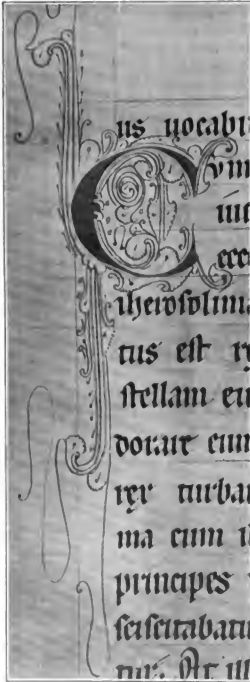 us uocabu
Cum
ecce
iherosolima
tus est re
stellam eiu
dorare eum
rex turba
ma cum i
principes
sciscitabatu
tur. At ill